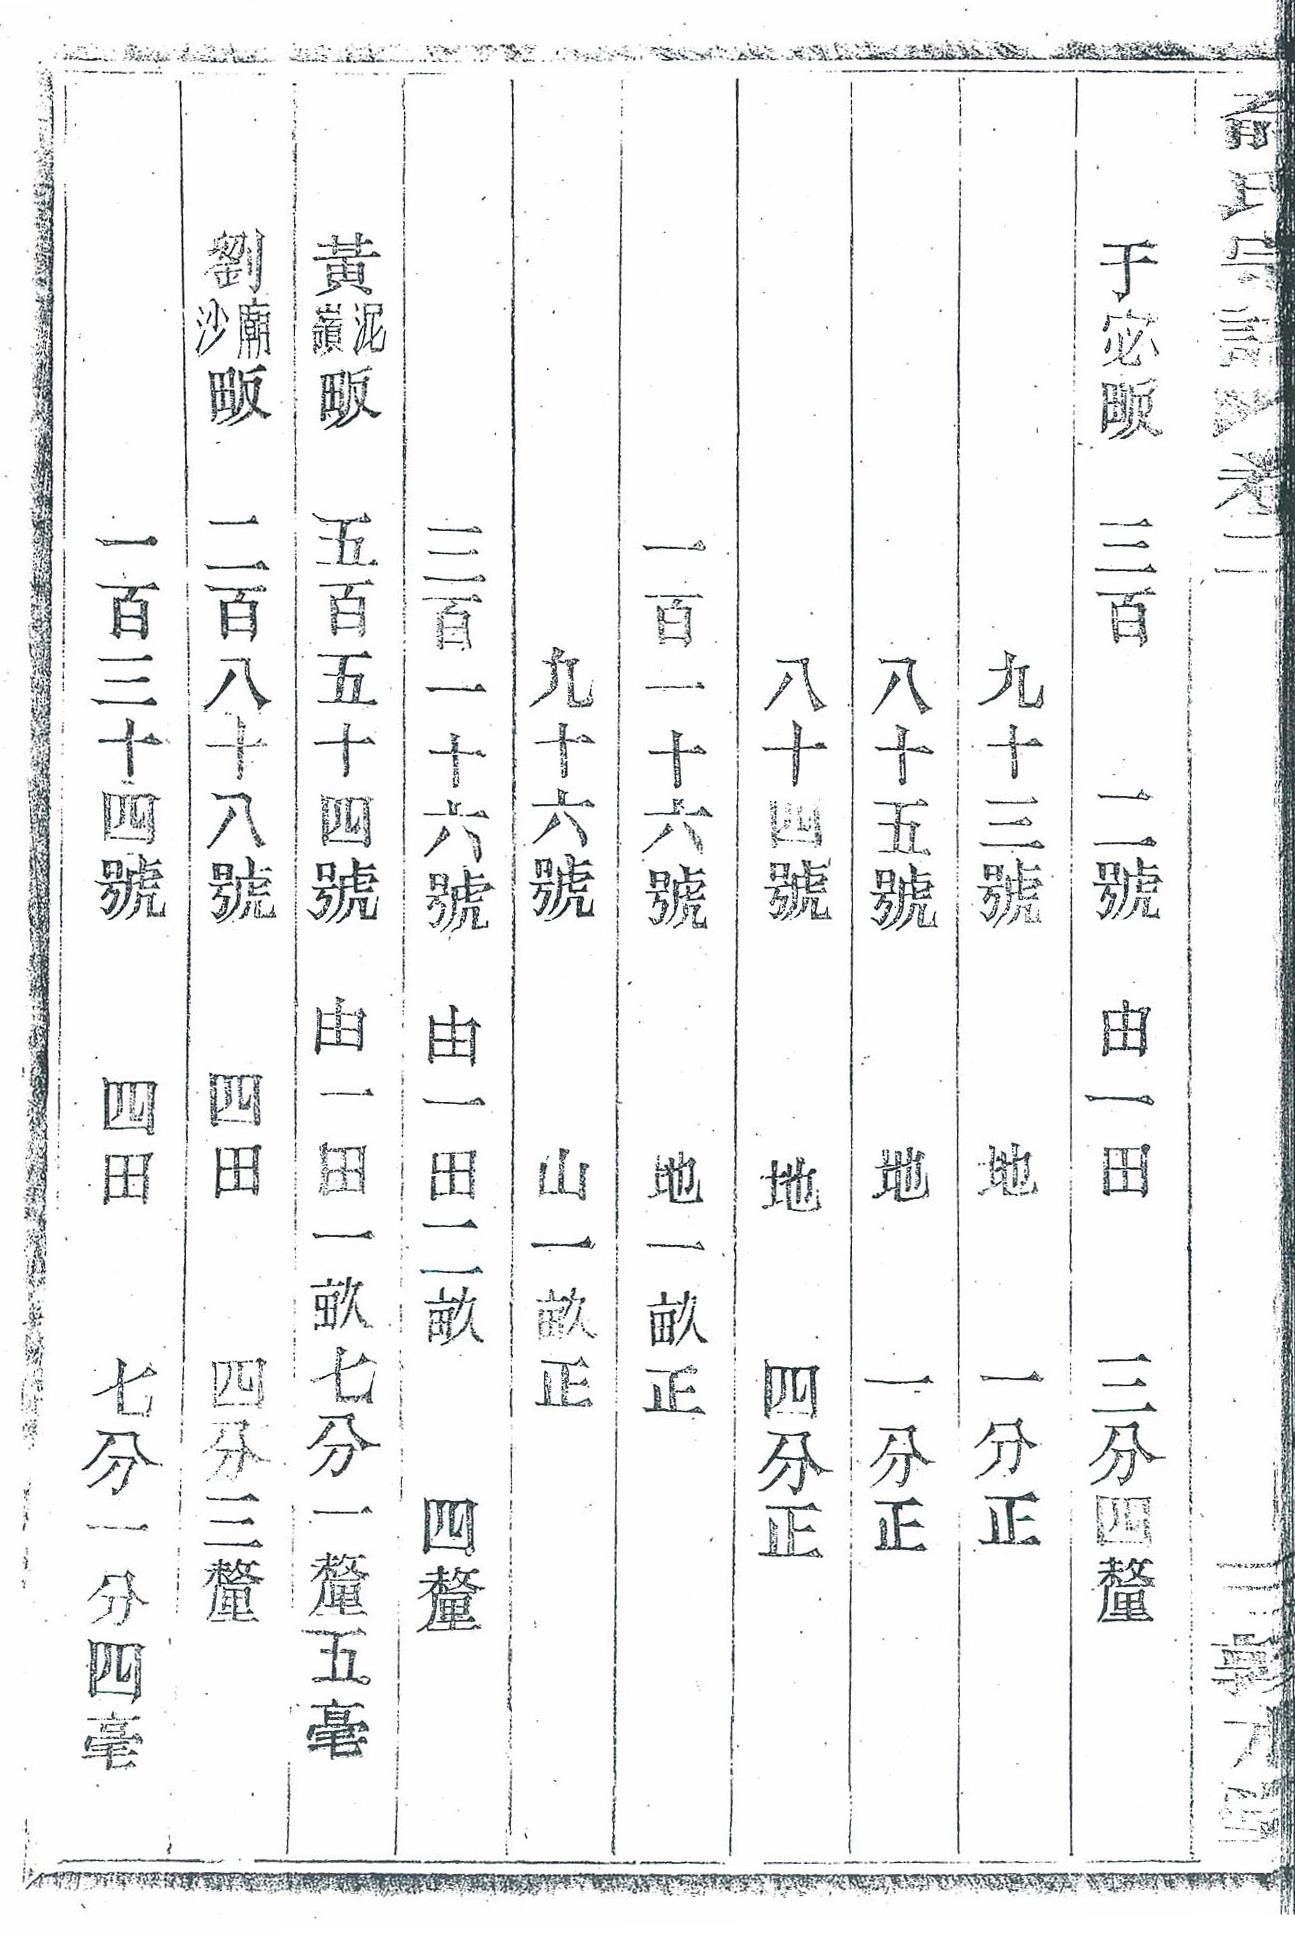 俞氏宗譜 卷二
于宓畈 三百 二號 由一田 三分四釐
九十三號 地 一分正
八十五號 地 一分正
八十四號 地 四分正
一百一十六號 地一畝正
九十六號 山一畝正
三百一十六號 由一田二畝 四釐
黃泥嶺畈 五百五十四號 由一田一畝七分一釐五毫
劉廟沙畈 二百八十八號 四田 四分三釐
一百三十四號 四田 七分一分四毫